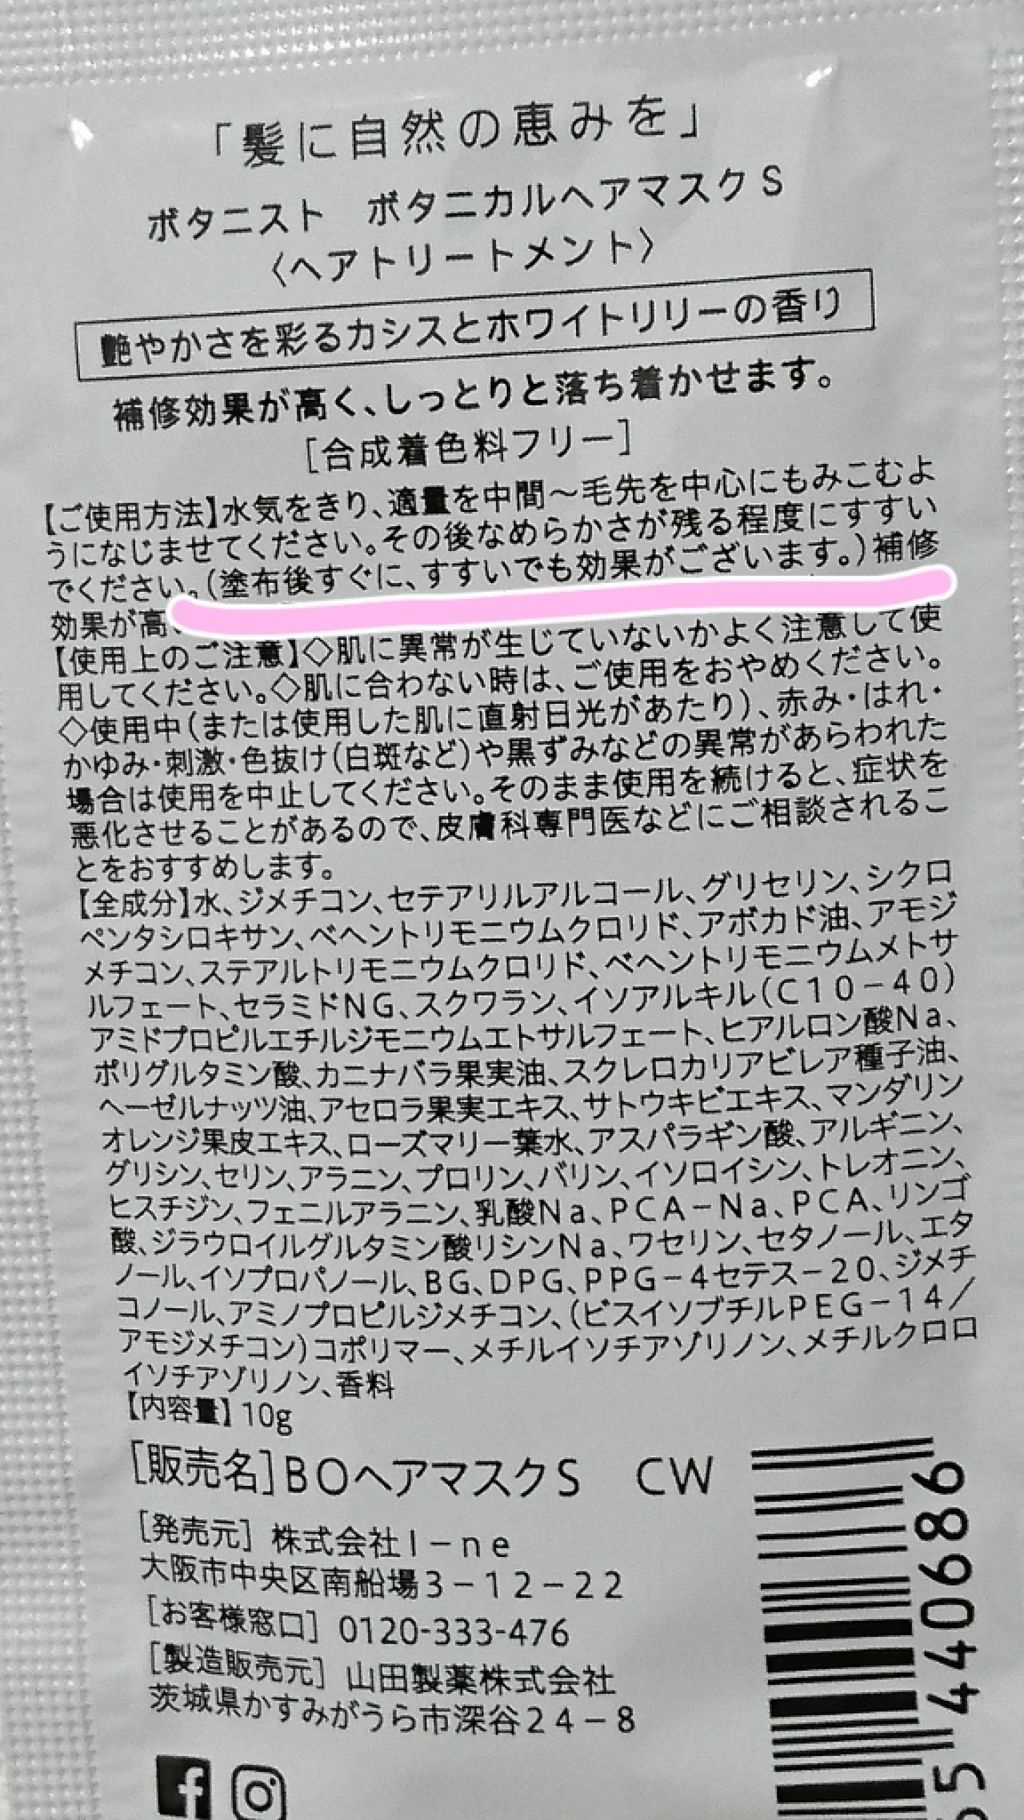 「髪に自然の恵みを」
ボタニスト ボタニカルヘアマスクS
〈ヘアトリートメント〉
艶やかさを彩るカシスとホワイトリリーの香り
補修効果が高く、しっとりと落ち着かせます。
[合成着色料フリー]
【ご使用方法】水気をきり、適量を中間～毛先を中心にもみこむよ
うになじませてください。その後なめらかさが残る程度にすすい
でください。(塗布後すぐに、すすいでも効果がございます。)補修
効果が高
【使用上のご注意】◇肌に異常が生じていないかよく注意して使
用してください。◇肌に合わない時は、ご使用をおやめください。
◇使用中(または使用した肌に直射日光があたり)、赤み・はれ・
かゆみ・刺激・色抜け(白斑など)や黒ずみなどの異常があらわれた
場合は使用を中止してください。そのまま使用を続けると、症状を
悪化させることがあるので、皮膚科専門医などにご相談されるこ
とをおすすめします。
【全成分】水、ジメチコン、セテアリルアルコール、グリセリン、シクロ
ペンタシロキサン、ベヘントリモニウムクロリド、アボカド油、アモジ
メチコン、ステアルトリモニウムクロリド、ベヘントリモニウムメトサ
ルフェート、セラミドNG、スクワラン、イソアルキル(C10-40)
アミドプロピルエチルジモニウムエトサルフェート、ヒアルロン酸Na、
ポリグルタミン酸、カニナバラ果実油、スクレロカリアビレア種子油、
ヘーゼルナッツ油、アセロラ果実エキス、サトウキビエキス、マンダリン
オレンジ果皮エキス、ローズマリー葉水、アスパラギン酸、アルギニン、
グリシン、セリン、アラニン、プロリン、バリン、イソロイシン、トレオニン、
ヒスチジン、フェニルアラニン、乳酸Na、PCA-Na、PCA、リンゴ
酸、ジラウロイルグルタミン酸リシンNa、ワセリン、セタノール、エタ
ノール、イソプロパノール、BG、DPG、PPG-4セテス-20、ジメチ
コノール、アミノプロピルジメチコン、(ビスイソブチルPEG-14/
アモジメチコン)コポリマー、メチルイソチアゾリノン、メチルクロロ
イソチアゾリノン、香料
【内容量】10g
[販売名]BOヘアマスクS CW
[発売元] 株式会社I-ne
大阪市中央区南船場3-12-22
[お客様窓口] 0120-333-476
[製造販売元] 山田製薬株式会社
茨城県かすみがうら市深谷24-8
5 440686